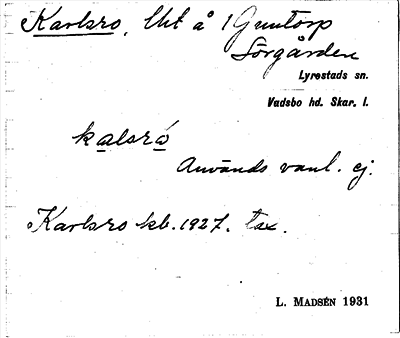 Karlsro, lht å 1 Guntorp
Sörgården
Lyrestads sn.
Vadsbo hd. Skar. l.
kalsrò
Används vanl. ej.
Karlsro kb. 1927. tax.
L. MADSÉN 1931